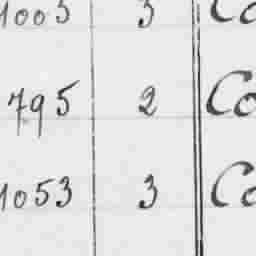 1003 3 Co
795 2 Co
1053 3 Co